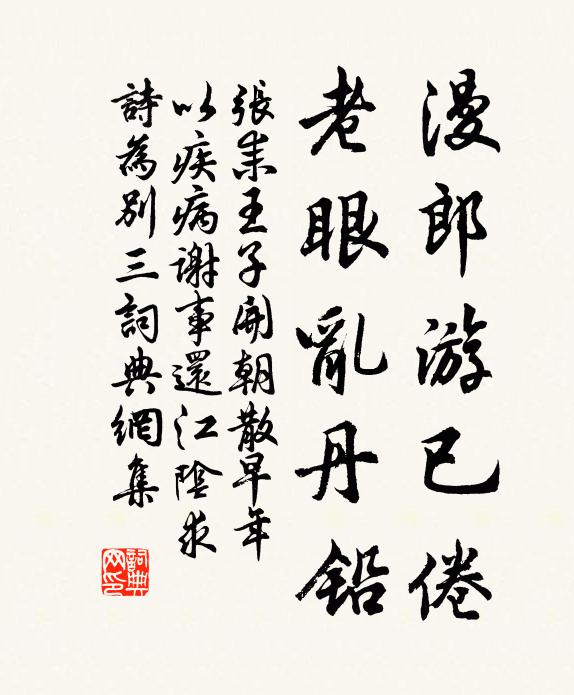 漫郎游已倦
老眼亂丹鉛
張耒王子開朝散早年
以疾病謝事還江陰求
詩為別三詞典網集
詞典
网印